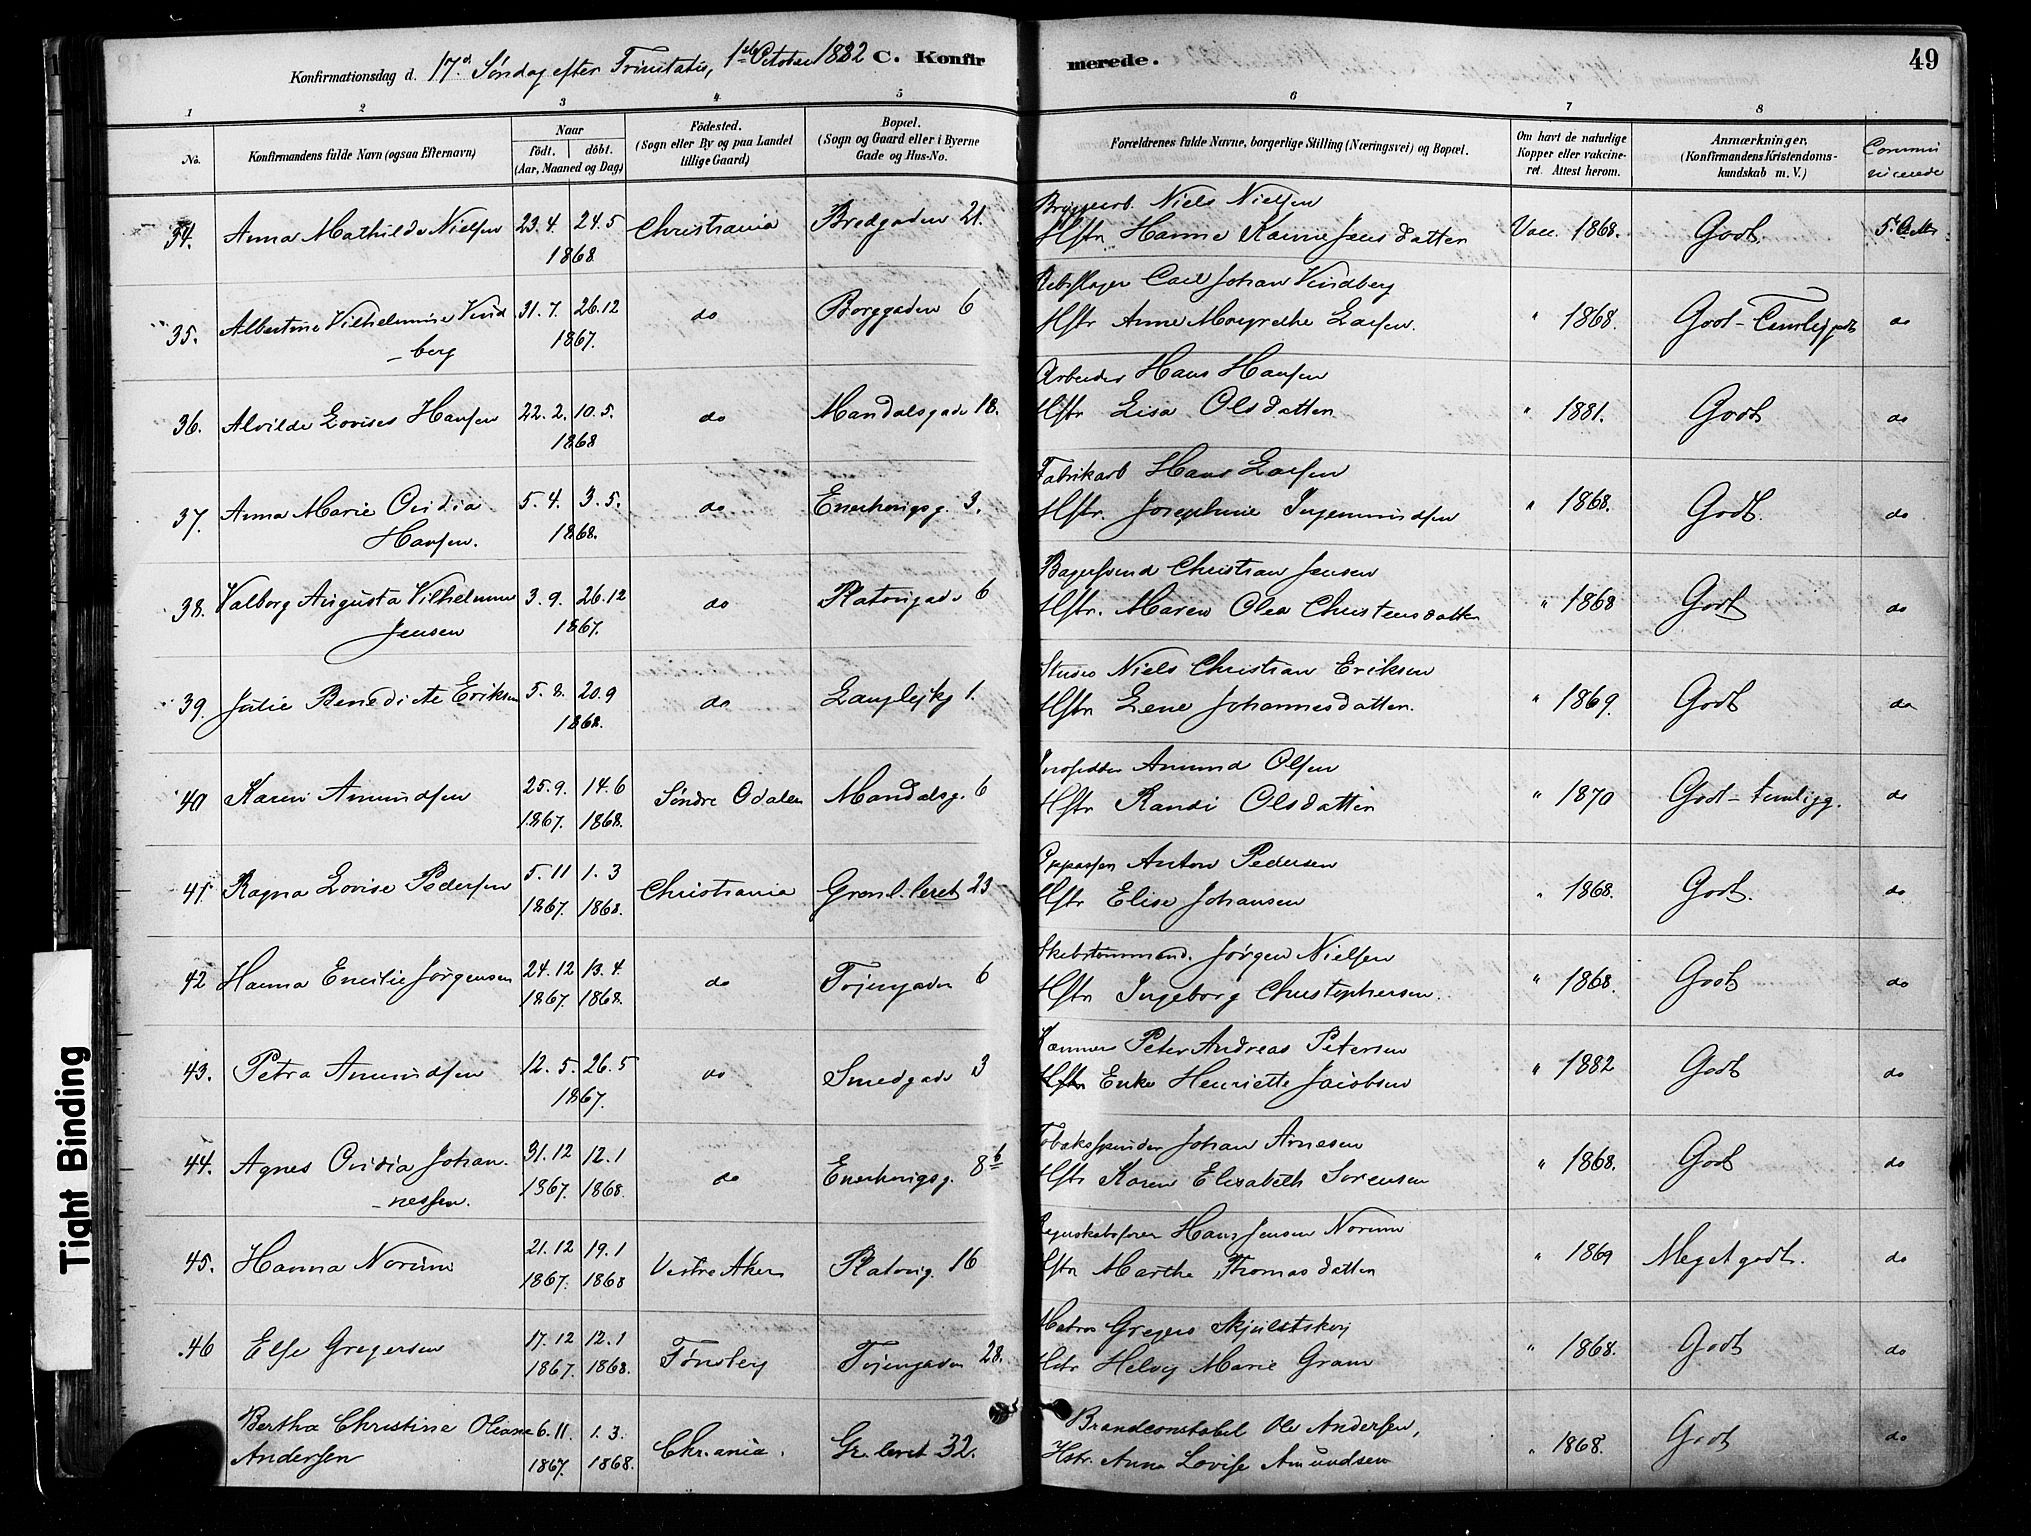 Konfirmationsdag d. 17d Søndag efter Trinitatis, 1ste October 1882 C. Konfirmerede. 49
1 2 3 4 5 6 7 8
No. Konfirmandens fulde Navn (ogsaa Efternavn) Naar født. døbt. (Aar, Maaned og Dag) Födested. (Sogn eller By og paa Landet tillige Gaard) Bopæl. (Sogn og Gaard eller i Byerne Gade og Hus-No. Forældrenes fulde Navne, borgerlige Stilling (Næringsvei) og Bopæl. Om havt de naturlige Kopper eller vakcineret. Attest herom. Anmærkninger. (Konfirmandens Kristendomskundskab m. V.) Communicerede
34. Anna Mathilde Nielsen 23.4. 24.5 1868 Christiania Bredgaden 21. Niels Nielsen
Hstr Hanne Karine Jensdatter Vacc. 1868. Godt
35. Albertine Vilhelmine Vindberg 31.7. 26.12 1867. do Borggaden 6 Rebslager Carl Johan Vindberg
Hstr Anne Margrethe Larsen. " 1868. Godt - Temlig godt do
36. Alvilde Lovise Hansen 22.2. 10.5. 1868 do Mandalsgade 18. Arbeider Hans Hansen
Hstr Lisa Olsdatter " 1881. Godt do
37. Anna Marie Ovidia Hansen. 5.4. 3.5. 1868. do Enerhaugsg. 3. Fabrikarb Hans Larsen
Hstr. Josephine Ingemundsen " 1868. Godt. do
38. Valborg Augusta Vilhelmine Jensen 3.9. 26.12 1867. do Platougade 6 Bagersvend Christian Jensen
Hstr. Maren Olea Christensdatter " 1868 Godt do
39. Julie Benedicte Eriksen 5.8. 20.9 1868. do Langleikg 1. Niels Christian Eriksen
Hstr Lene Johannesdatter. " 1869. Godt do
40 Karen Amundsen 25.9. 1867. 14.6 1868. Søndre Odalen Mandalsg. 6 Amund Olsen
Hstr Randi Olsdatter " 1870 Godt - temligg. do
41 Ragna Lovise Pedersen 5.11 1867. 1.3 1868. Christiania Grønl. leret 23 Oppasser Anton Pedersen
Hstr Elise Johansen " 1868. Godt. do
42 Hanna Emilie Jørgensen 24.12 1867. 13.4. 1868. do Tøiengaden 6 Skibstømmermand. Jørgen Nielsen
Hstr Ingeborg Christophersen. " 1868. Godt do
43. Petra Amundsen 12.5. 26.5 1867. do Smedgade 3 Peter Andreas Petersen
Enke Henriette Jacobsen " 1882 Godt do
44. Agnes Ovidia Johannessen. 31.12 1867. 12.1 1868 do Enerhaugsg. 8b Tobaksspinder Johan Arnesen
Hstr Karen Elisabeth Sørensen " 1868. Godt do
45. Hanna Norum 21.12 1867. 19.1 1868 Vestre Aker Platoug. 16 Regnskabsfører Hans Jensen Norum
Hstr Marthe Thomasdatter " 1869 Meget godt. do
46 Else Gregersen 17.12 1867. 12.1 1868. Tønsberg Tøiengaden 28. Matros Gregers
Hstr Helvig Marie Gram " 1868. Godt do
Bertha Christine Oliane Andersen 6.11. 1867. 1.3. 1868. Chr.ania. Gr. leret 32. Brandconstabel Ole Andersen,
Hstr. Anna Lovise Amundsen " 1868. Godt do
Tight Binding